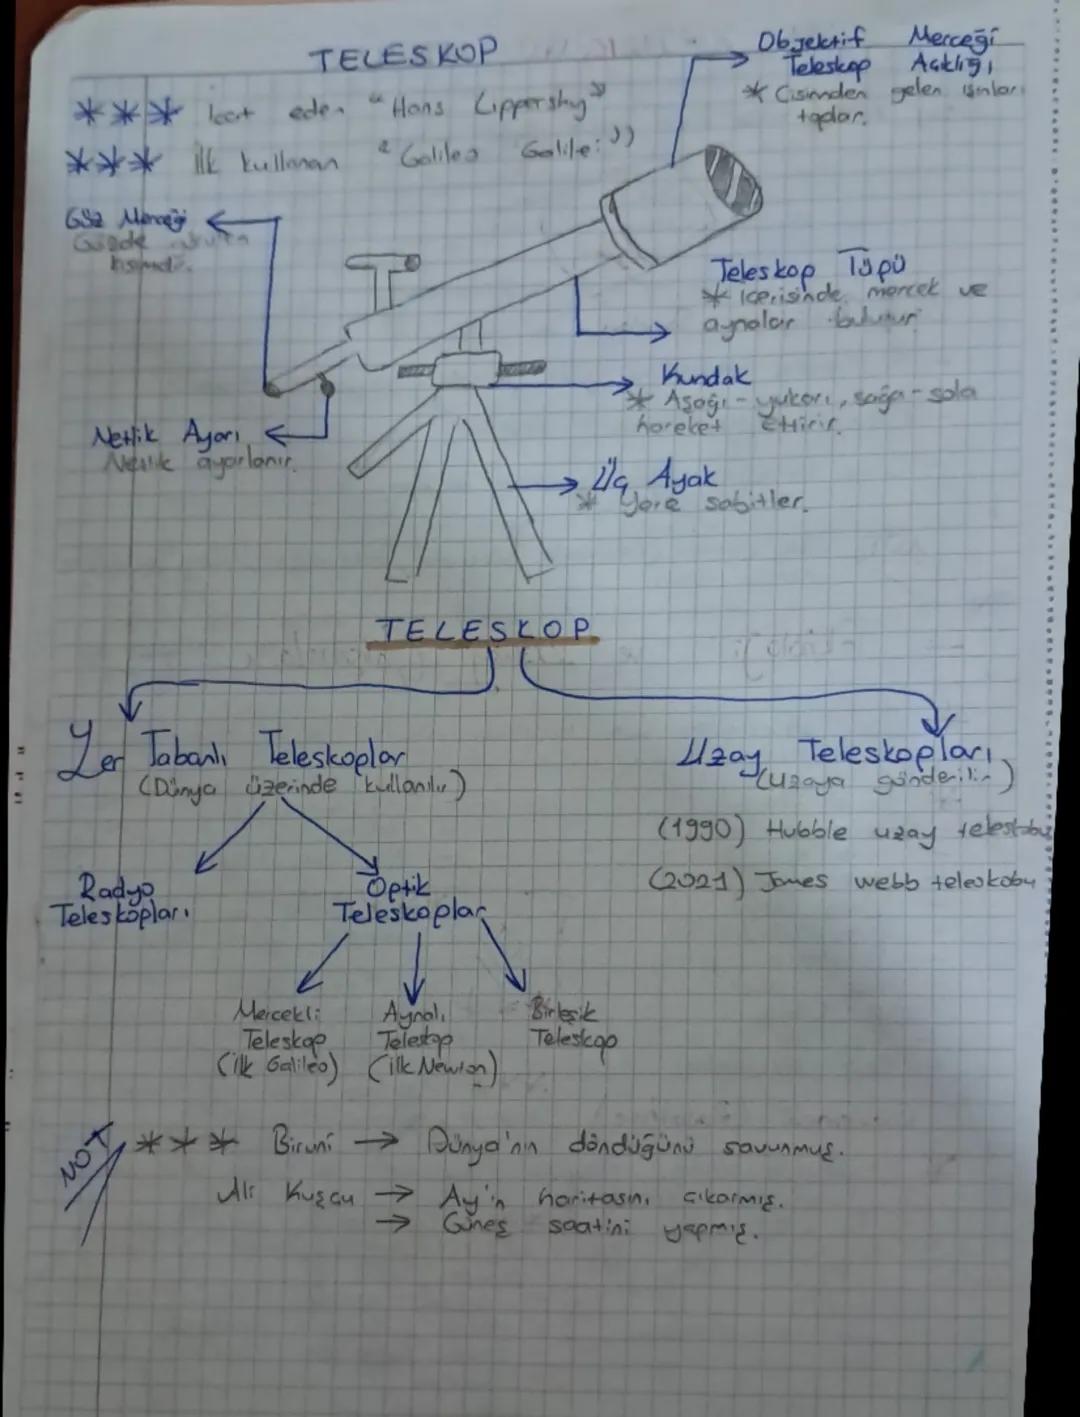 TELESKOP
*** İcat eden "Hans Lippershy"
*** İlk kullanan "Galileo Galilei"
Objektif Merceği
Teleskop Açıklığı
* Cisimden gelen ışınları
toplar.
Göz Merceği
Gözde
kısımdır.
Teleskop Tüpü
* İçerisinde mercek ve
aynalar bulunur.
Kundak
* Aşağı-yukarı, sağa-sola
hareket ettirir.
Netlik Ayarı
Netlik ayarlanır.
Üç Ayak
* Yere sabitler.
TELESKOP
Yer Tabanlı Teleskoplar
(Dünya üzerinde kullanılır)
Uzay Teleskopları
(Uzaya gönderilir)
(1990) Hubble uzay teleskobu
(2021) James webb teleskobu
Radyo
Teleskopları
Optik
Teleskoplar
Mercekli
Teleskop
(ilk Galileo)
Aynalı
Teleskop
(ilk Newton)
Birleşik
Teleskop
NOT
*** Biruni → Dünya'nın döndüğünü savunmuş.
Ali Kuşçu → Ay'ın haritasını çıkarmış.
→ Güneş saatini yapmış.